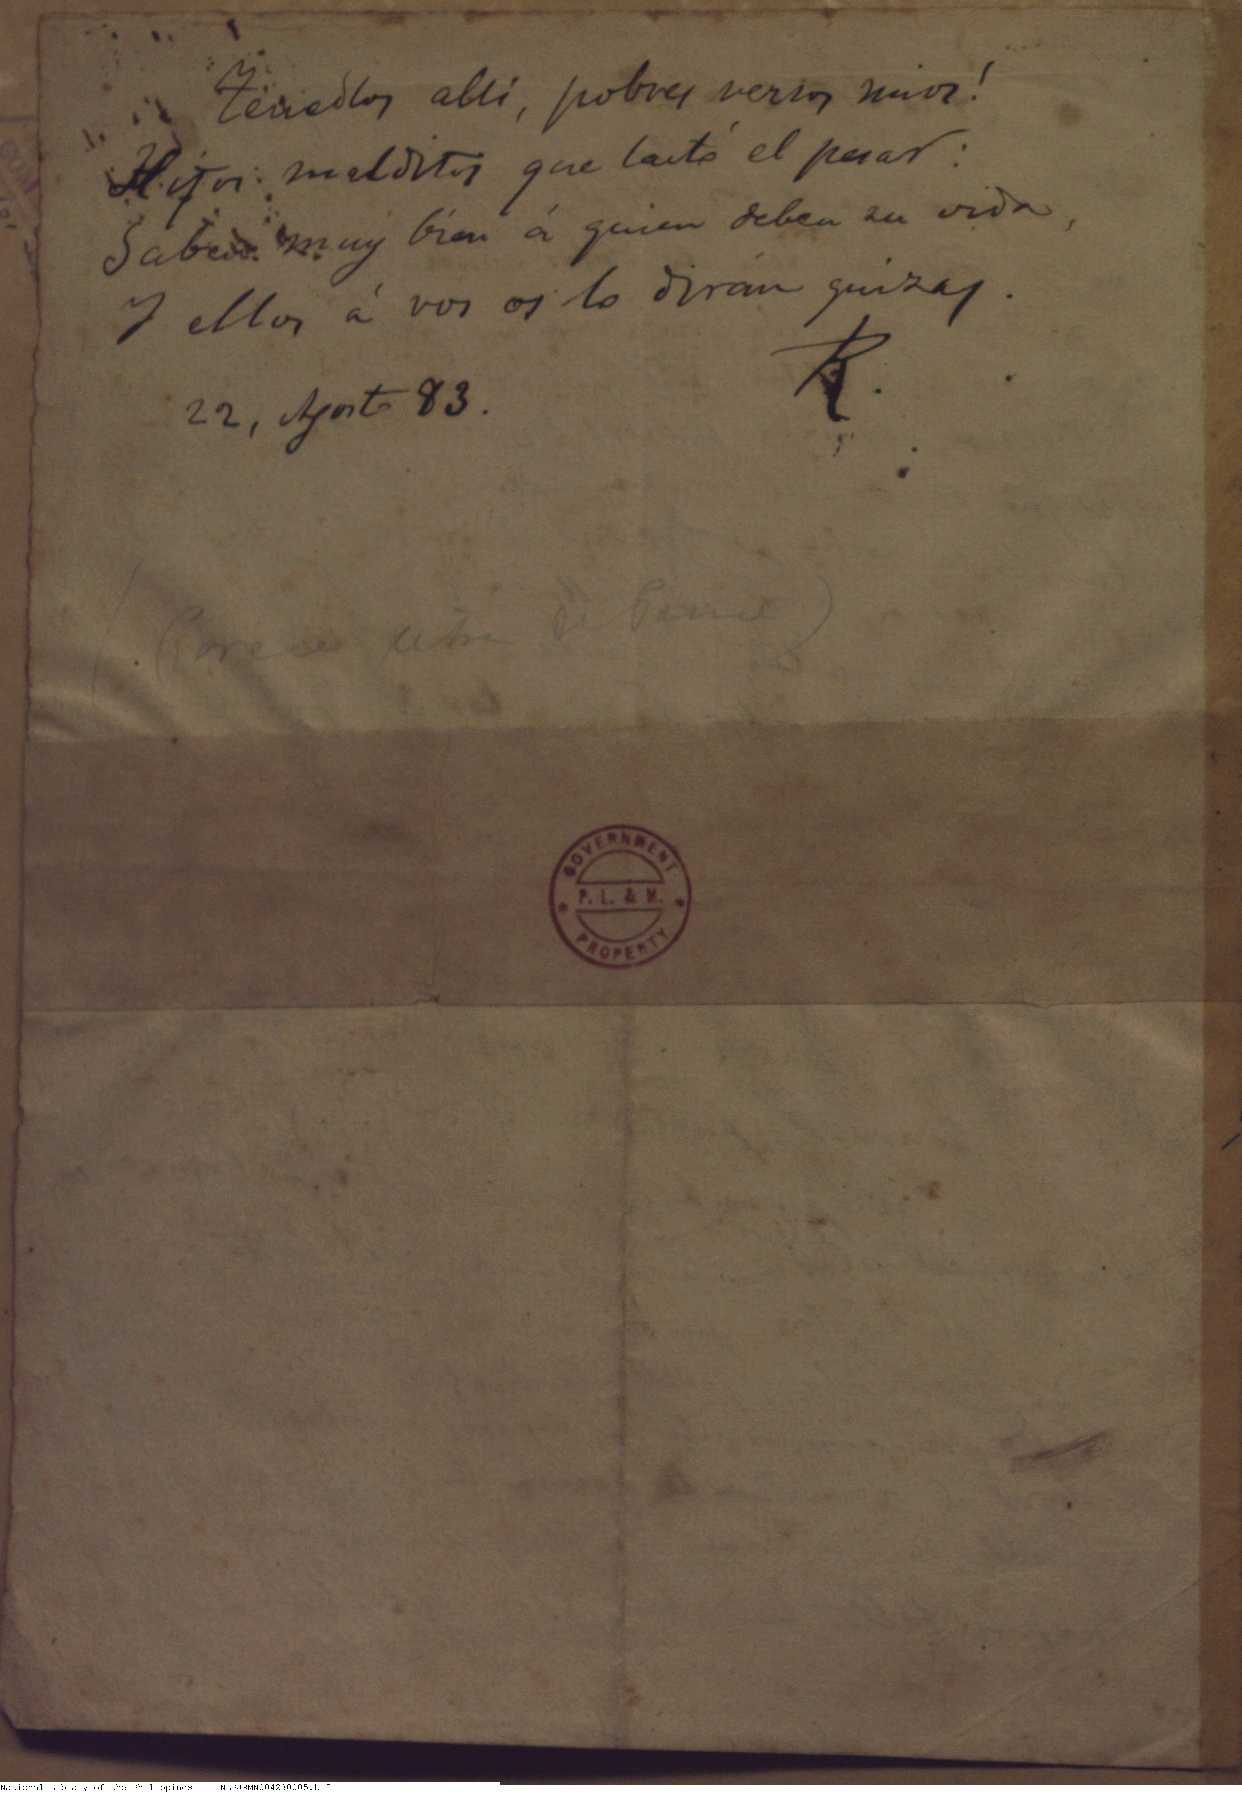 Tenedlos alli, pobres versos mios!
Hijos malditos que lactó el pesar:
Saben muy bien á quien deben su vida,
Y ellos á vos os lo dirán quizas.
R.
22, Agosto 83.
(Parece letra de
GOVERNMENT
P. L. & M.
PROPERTY
National Library of the Philippines